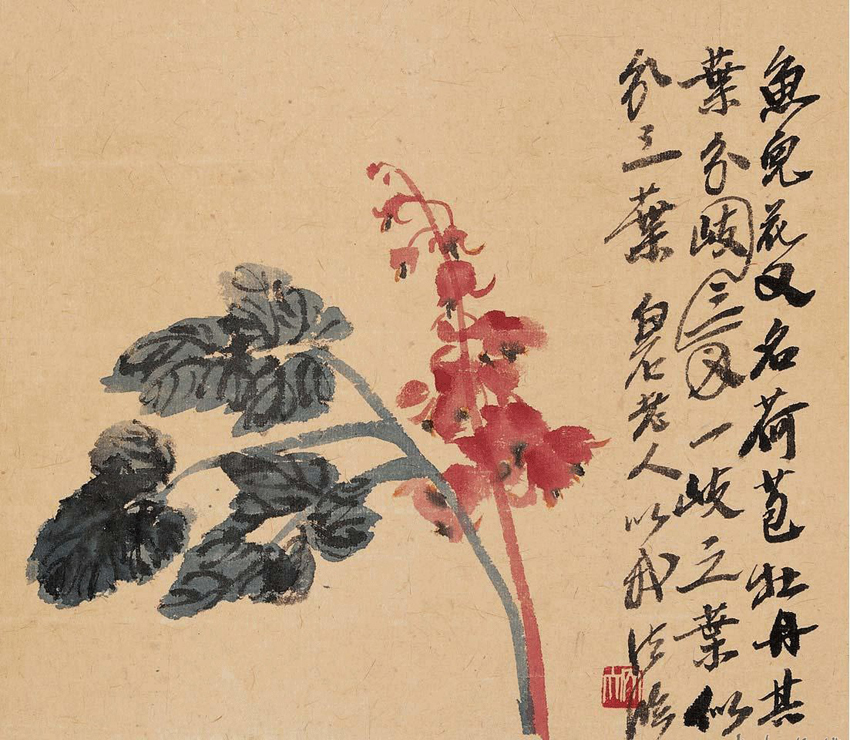 魚兒花又名荷苞牡丹其
葉分歧三叉一歧之葉似
分三葉 白石老人以我法臨